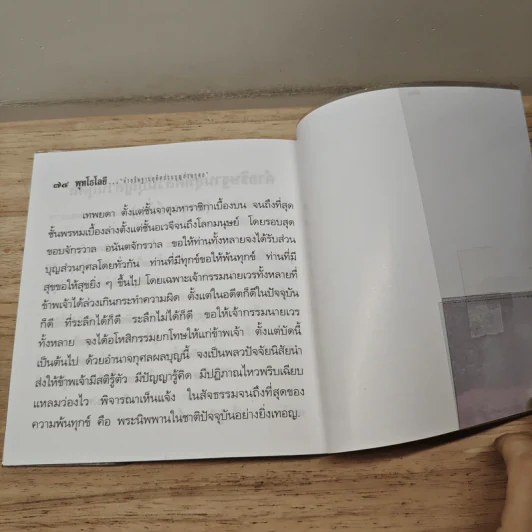 ๗๔ พุทโธโลยี...
เทพยดา ตั้งแต่ชั้นจาตุมหาราชิกาเบื้องบน จนถึงที่สุด
ชั้นพรหมเบื้องล่างตั้งแต่ชั้นอเวจีจนถึงโลกมนุษย์ โดยรอบสุด
ขอบจักรวาล อนันตจักรวาล ขอให้ท่านทั้งหลายจงได้รับส่วน
บุญส่วนกุศลโดยทั่วกัน ท่านที่มีทุกข์ขอให้พ้นทุกข์ ท่านที่มี
สุขขอให้สุขยิ่ง ๆ ขึ้นไป โดยเฉพาะเจ้ากรรมนายเวรทั้งหลายที่
ข้าพเจ้าได้ล่วงเกินกระทำความผิด ตั้งแต่ในอดีตก็ดีในปัจจุบัน
ก็ดี ที่ระลึกได้ก็ดี ระลึกไม่ได้ก็ดี ขอให้เจ้ากรรมนายเวร
ทั้งหลาย จงได้อโหสิกรรมยกโทษให้แก่ข้าพเจ้า ตั้งแต่บัดนี้
เป็นต้นไป ด้วยอำนาจกุศลผลบุญนี้ จงเป็นพลวปัจจัยนิสัยนำ
ส่งให้ข้าพเจ้ามีสติรู้ตัว มีปัญญารู้คิด มีปฏิภาณไหวพริบเฉียบ
แหลมว่องไว พิจารณาเห็นแจ้ง ในสัจธรรมจนถึงที่สุดของ
ความพ้นทุกข์ คือ พระนิพพานในชาติปัจจุบันอย่างยิ่งเทอญ.